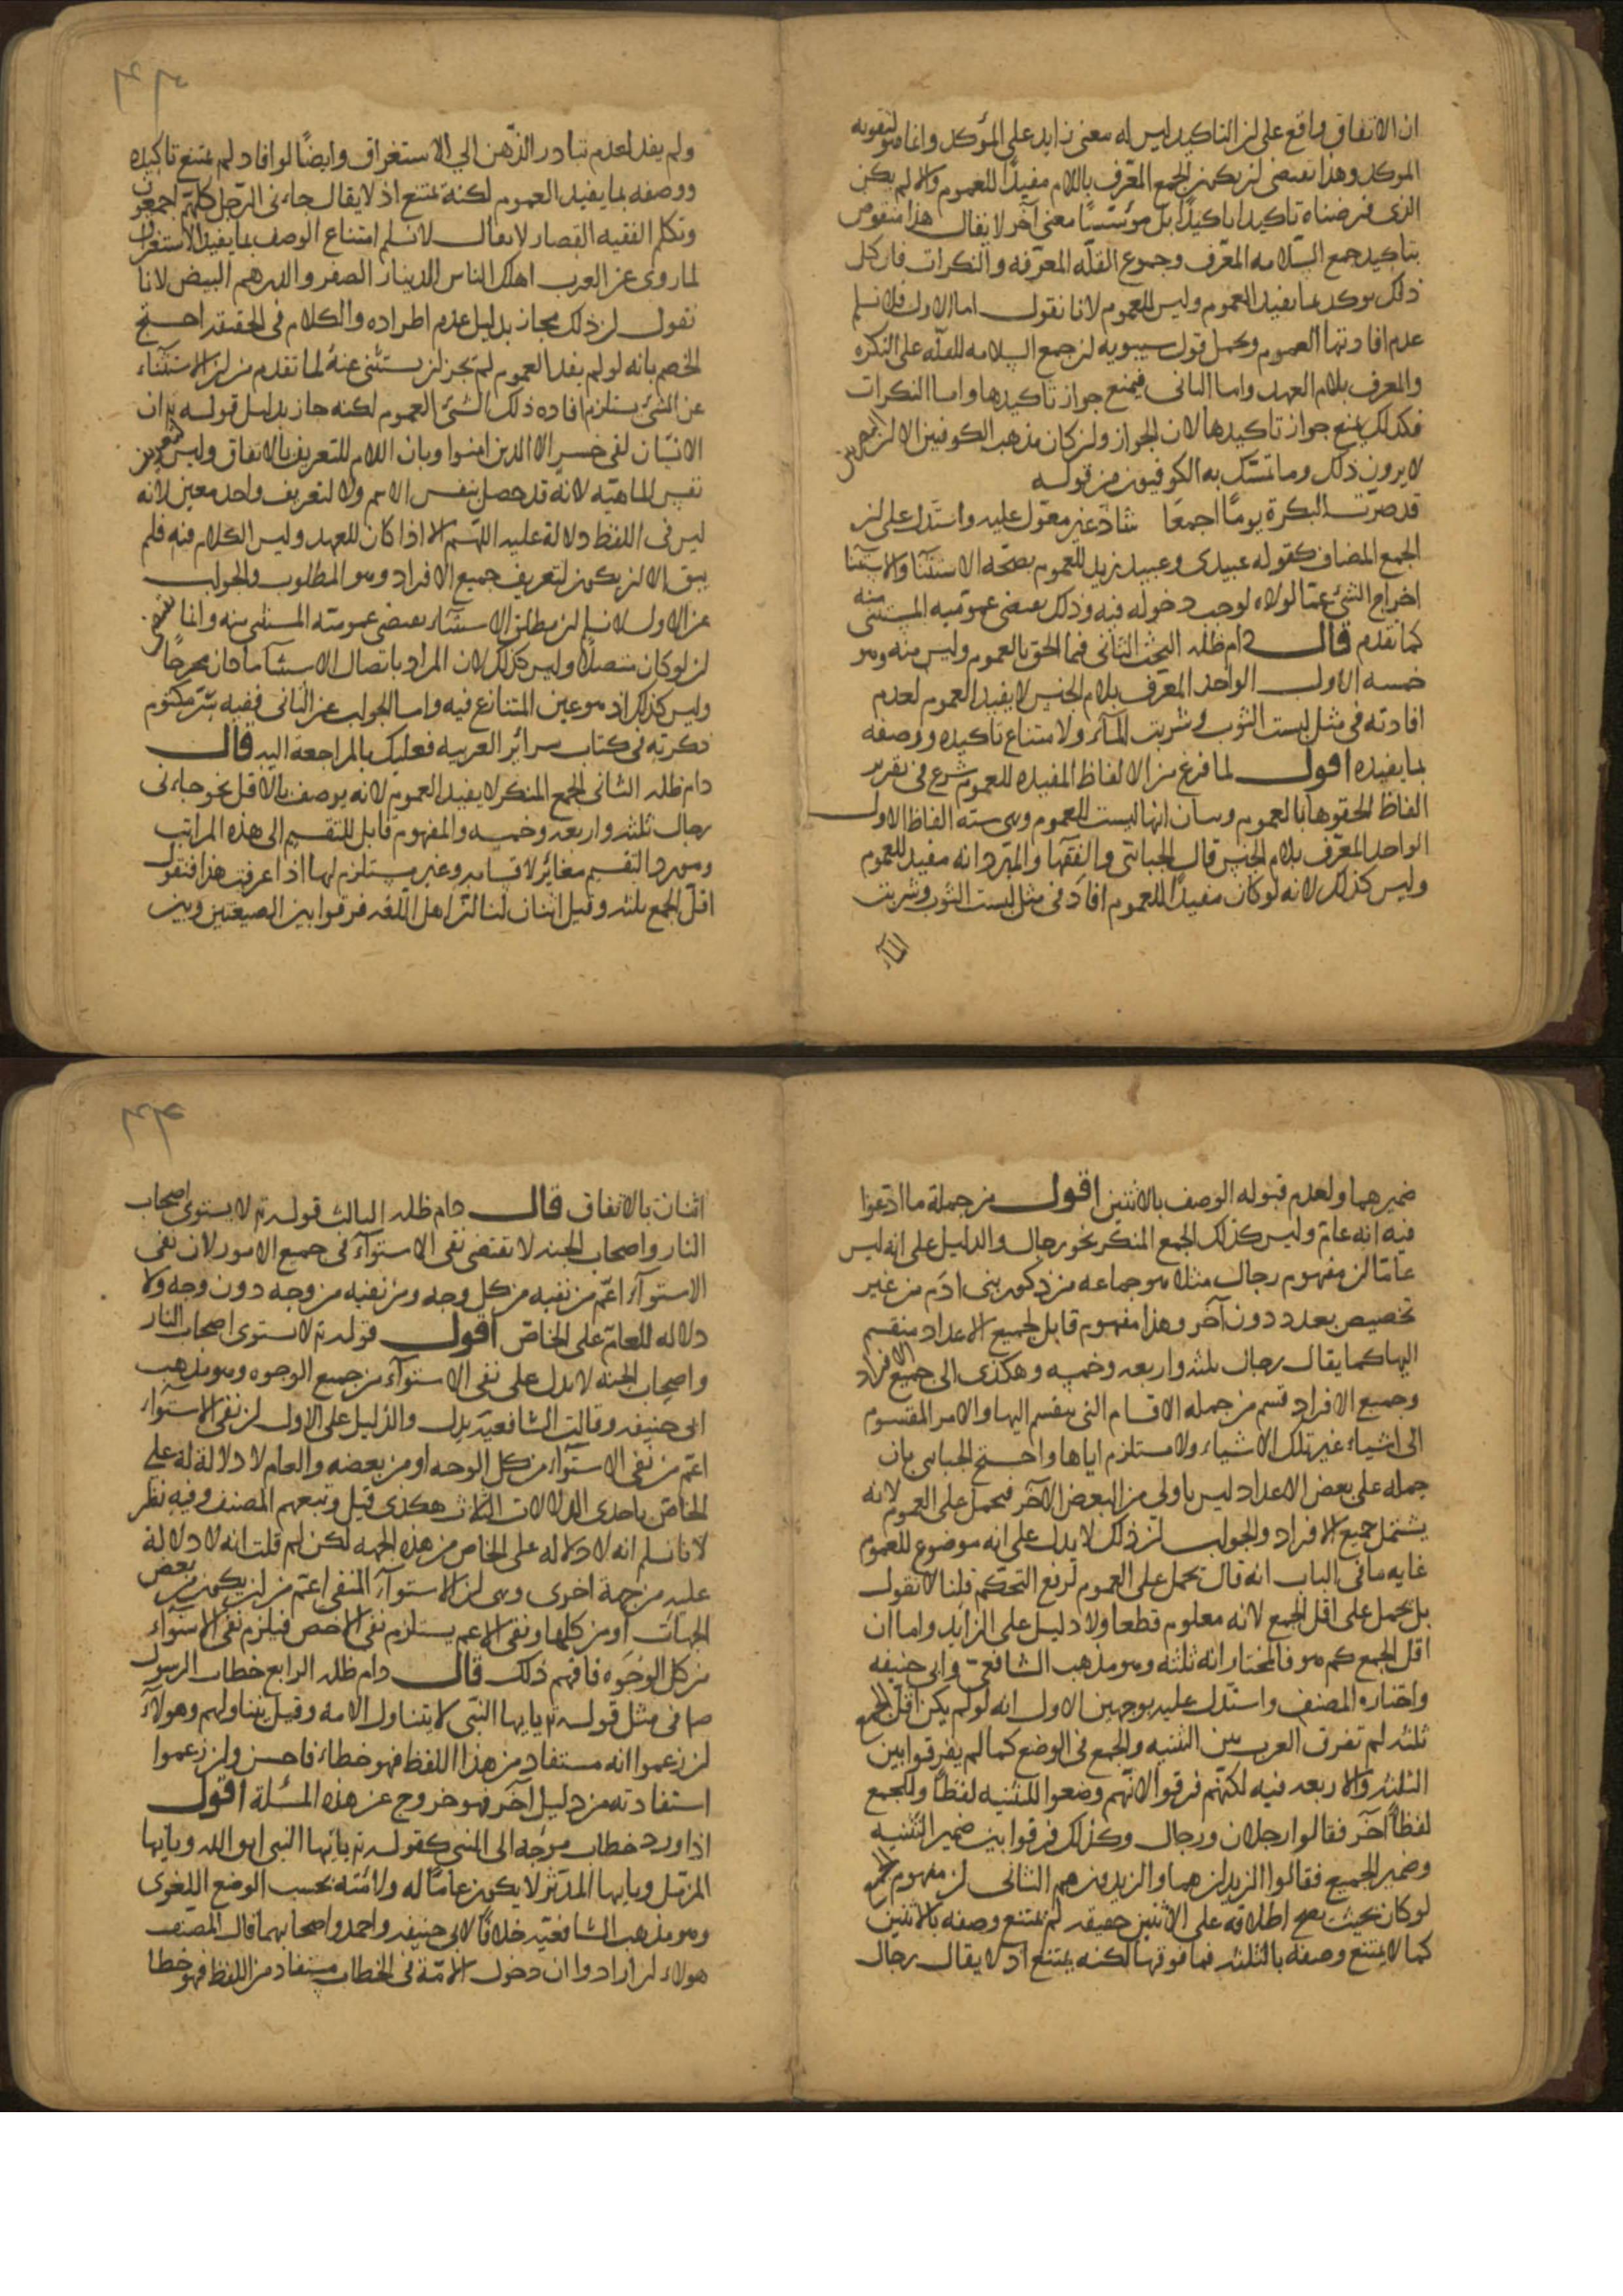 ان الاتفاق واقع على ان التاكيد ليس له معنى زايد على المؤكد وانما هو لتقويه
الموكد وهذا يقتضى ان يكون الجمع المعرّف باللام مفيدًا للعموم والا لم يكن
الذى فرضناه تاكيدا تاكيدًا بل مؤسّسًا معنى آخر لا يقال هذا منقوض
بتاكيد جمع السّلامه المعرّف وجموع القلّه المعرّفه والنكرات فان كل
ذلك يوكد بما يفيد العموم وليس للعموم لانا نقول اما الاول فلا نسلم
عدم افادتها العموم ويحمل قول سيبويه ان جمع السلامه للقلّه على النكره
والمعرف بلام العهد واما الثانى فيمنع جواز تاكيدها واما النكرات
فكذلك يمنع جواز تاكيدها لان الجواز وان كان مذهب الكوفيين الا ان البصريين
لا يرون ذلك وما تمسّك به الكوفيون من قوله
قد صرّت البكرة يومًا اجمعَا شاذ غير معوّل عليه واستدل على ان
الجمع المضاف كقوله عبيدى وعبيد زيد للعموم بصحّه الاستثنآ والاستثنآ
اخراج الشئ عمّا لولاه لوجب دخوله فيه وذلك يقتضى عموميه المستثنى منه
كما تقدم قال دام ظله البحث الثانى فيما الحق بالعموم وليس منه وهو
خمسه الاول الواحد المعرف بلام الجنس لا يفيد العموم لعدم
افادته فى مثل لبست الثوب وشربت المآء ولامتناع تاكيده ووصفه
بما يفيده اقول لما فرغ من الالفاظ المفيده للعموم شرع فى تقرير
الفاظ الحقوها بالعموم وبيان انها ليست للعموم وهى سته الفاظ الاول
الواحد المعرّف بلام الجنس قال الجبائى والفقهآ والمبرد انه مفيد للعموم
وليس كذلك لانه لو كان مفيدًا للعموم افاد فى مثل لبست الثوب وشربت
المآ
ولم يفد لعدم تبادر الذّهن الى الاستغراق وايضًا لو افاد لم يمتنع تاكيده
ووصفه بما يفيد العموم لكنه يمتنع اذ لا يقال جاءنى الرّجل كلّهم اجمعون
وتكلم الفقيه القصار لا يقال لا نسلم امتناع الوصف بما يفيد الاستغراق
لما روى عن العرب اهلك الناس الدينار الصفر والدرهم البيض لانا
نقول ان ذلك مجاز بدليل عدم اطراده والكلام فى الحقيقه احتج
الخصم بانه لو لم يفد العموم لم يجز ان يستثنى عنهُ لما تقدم من ان الاستثناء
عن الشئ يستلزم افاده ذلك الشئ العموم لكنه جاز بدليل قوله تع ان
الانسان لفى خسر الا الذين امنوا وبان اللام للتعريف بالاتفاق وليس لتعريف
نفس الماهيّه لانه قد حصل بنفس الاسم ولا لتعريف واحد معين لانه
ليس فى اللفظ دلالة عليه اللّهم الا اذا كان للعهد وليس الكلام فيه فلم
يبق الا ان يكون لتعريف جميع الافراد وهو المطلوب والجواب
عن الاول لا نسلم ان مطلق الاستثناء يقتضى عموميّه المستثنى منه وانما يقتضى
ان لو كان متصلًا وليس كذلك لان المراد باتصال الاستثنآ ما كان مخرجًا
وليس كذلك اذ هو عين المتنازع فيه واما الجواب عن الثانى ففيه سرّ مكتوم
ذكرته فى كتاب سرائر العربيه فعليك بالمراجعة اليه قال
دام ظله الثانى الجمع المنكر لا يفيد العموم لانه يوصف بالاقل نحو جاءنى
رجال ثلثه واربعه وخمسه والمفهوم قابل للتقسيم الى هذه المراتب
ومورد التقسيم مغائر لاقسامه وغير مستلزم لها اذا عرفت هذا فنقول
اقلّ الجمع ثلثه وقيل اثنان لنا ان اهل اللغه فرقوا بين الصيغتين وبين
ضميرهما ولعدم قبوله الوصف بالاثنين اقول من جملة ما ادّعوا
فيه انه عامّ وليس كذلك الجمع المنكر نحو رجال والدليل على انه ليس
عامّا ان مفهوم رجال مثلا هو جماعه من ذكور بنى ادم من غير
تخصيص بعدد دون آخر وهذا مفهوم قابل لجميع الاعداد منقسم
اليها كما يقال رجال ثلثه واربعه وخمسه وهكذى الى جميع الافراد
وجميع الافراد قسم من جمله الاقسام التى ينقسم اليها والامر المقسوم
الى اشياء غير تلك الاشياء ولا مستلزم اياها واحتج الجبائى بان
حمله على بعض الاعداد ليس باولى من البعض الآخر فيحمل على العموم لانه
يشتمل جميع الافراد والجواب ان ذلك لا يدل على انه موضوع للعموم
غايه ما فى الباب انه قال يحمل على العموم لرفع التحكم قلنا لا نقول
بل يحمل على اقل الجمع لانه معلوم قطعا ولا دليل على الزايد واما ان
اقل الجمع كم هو فالمختار انه ثلثه وهو مذهب الشافعى وابى حنيفه
واختاره المصنف واستدل عليه بوجهين الاول انه لو لم يكن اقل الجمع
ثلثه لم تفرق العرب بين التثنيه والجمع فى الوضع كما لم يفرقوا بين
الثلثه والاربعه فيه لكنّهم فرقوا لانّهم وضعوا للتثنيه لفظًا وللجمع
لفظًا آخر فقالوا رجلان ورجال وكذلك فرقوا بين ضمير التثنيه
وضمير الجميع فقالوا الزيدان هما والزيدون هم الثانى ان مفهوم الجمع
لو كان بحيث يصح اطلاقه على الاثنين حقيقه لم يمتنع وصفه بالاثنين
كما لا يمتنع وصفه بالثلثه فما فوقها لكنه يمتنع اذ لا يقال رجال
اثنان بالاتفاق قال دام ظله الثالث قوله تع لا يستوى اصحاب
النار واصحاب الجنه لا تقتضى نفى الاستوآء فى جميع الامور لان نفى
الاستوآء اعمّ من نفيه من كل وجه ومن نفيه من وجه دون وجه ولا
دلاله للعامّ على الخاصّ اقول قوله تع لا يستوى اصحاب النار
واصحاب الجنه لا يدل على نفى الاستوآء من جميع الوجوه وهو مذهب
ابى حنيفه وقالت الشافعيّه يدل والدليل على الاول ان نفى الاستوآء
اعمّ من نفى الاستوآء من كل الوجه او من بعضه والعام لا دلالة له على
الخاصّ باحدى الدلالات الثلاث هكذى قيل وتبعهم المصنف وفيه نظر
لانا نسلم انه لا دلاله على الخاص من هذه الجهه لكن لم قلت انه لا دلالة
عليه من جهة اخرى وهى ان الاستوآء المنفى اعمّ من ان يكون من بعض
الجهات او من كلها ونفى الاعم يستلزم نفى الاخص فيلزم نفى الاستوآء
من كل الوجوه فافهم ذلك قال دام ظله الرابع خطاب الرسول
ص فى مثل قوله تع يايها النبى لا يتناول الامه وقيل يتناولهم وهولآء
ان زعموا انه مستفاد من هذا اللفظ فهو خطاء فاحش وان زعموا
استفادته من دليل آخر فهو خروج عن هذه المسئلة اقول
اذا ورد خطاب موجه الى النبى كقوله تع يايها النبى اتق الله ويايها
المزمّل ويايها المدّثر لا يكون عامًا له ولامّته بحسب الوضع اللغوى
وهو مذهب الشافعيّه خلافًا لابى حنيفه واحمد واصحابهما قال المصنف
هولاء ان ارادوا ان دخول الامّة فى الخطاب مستفاد من اللفظ فهو خطا